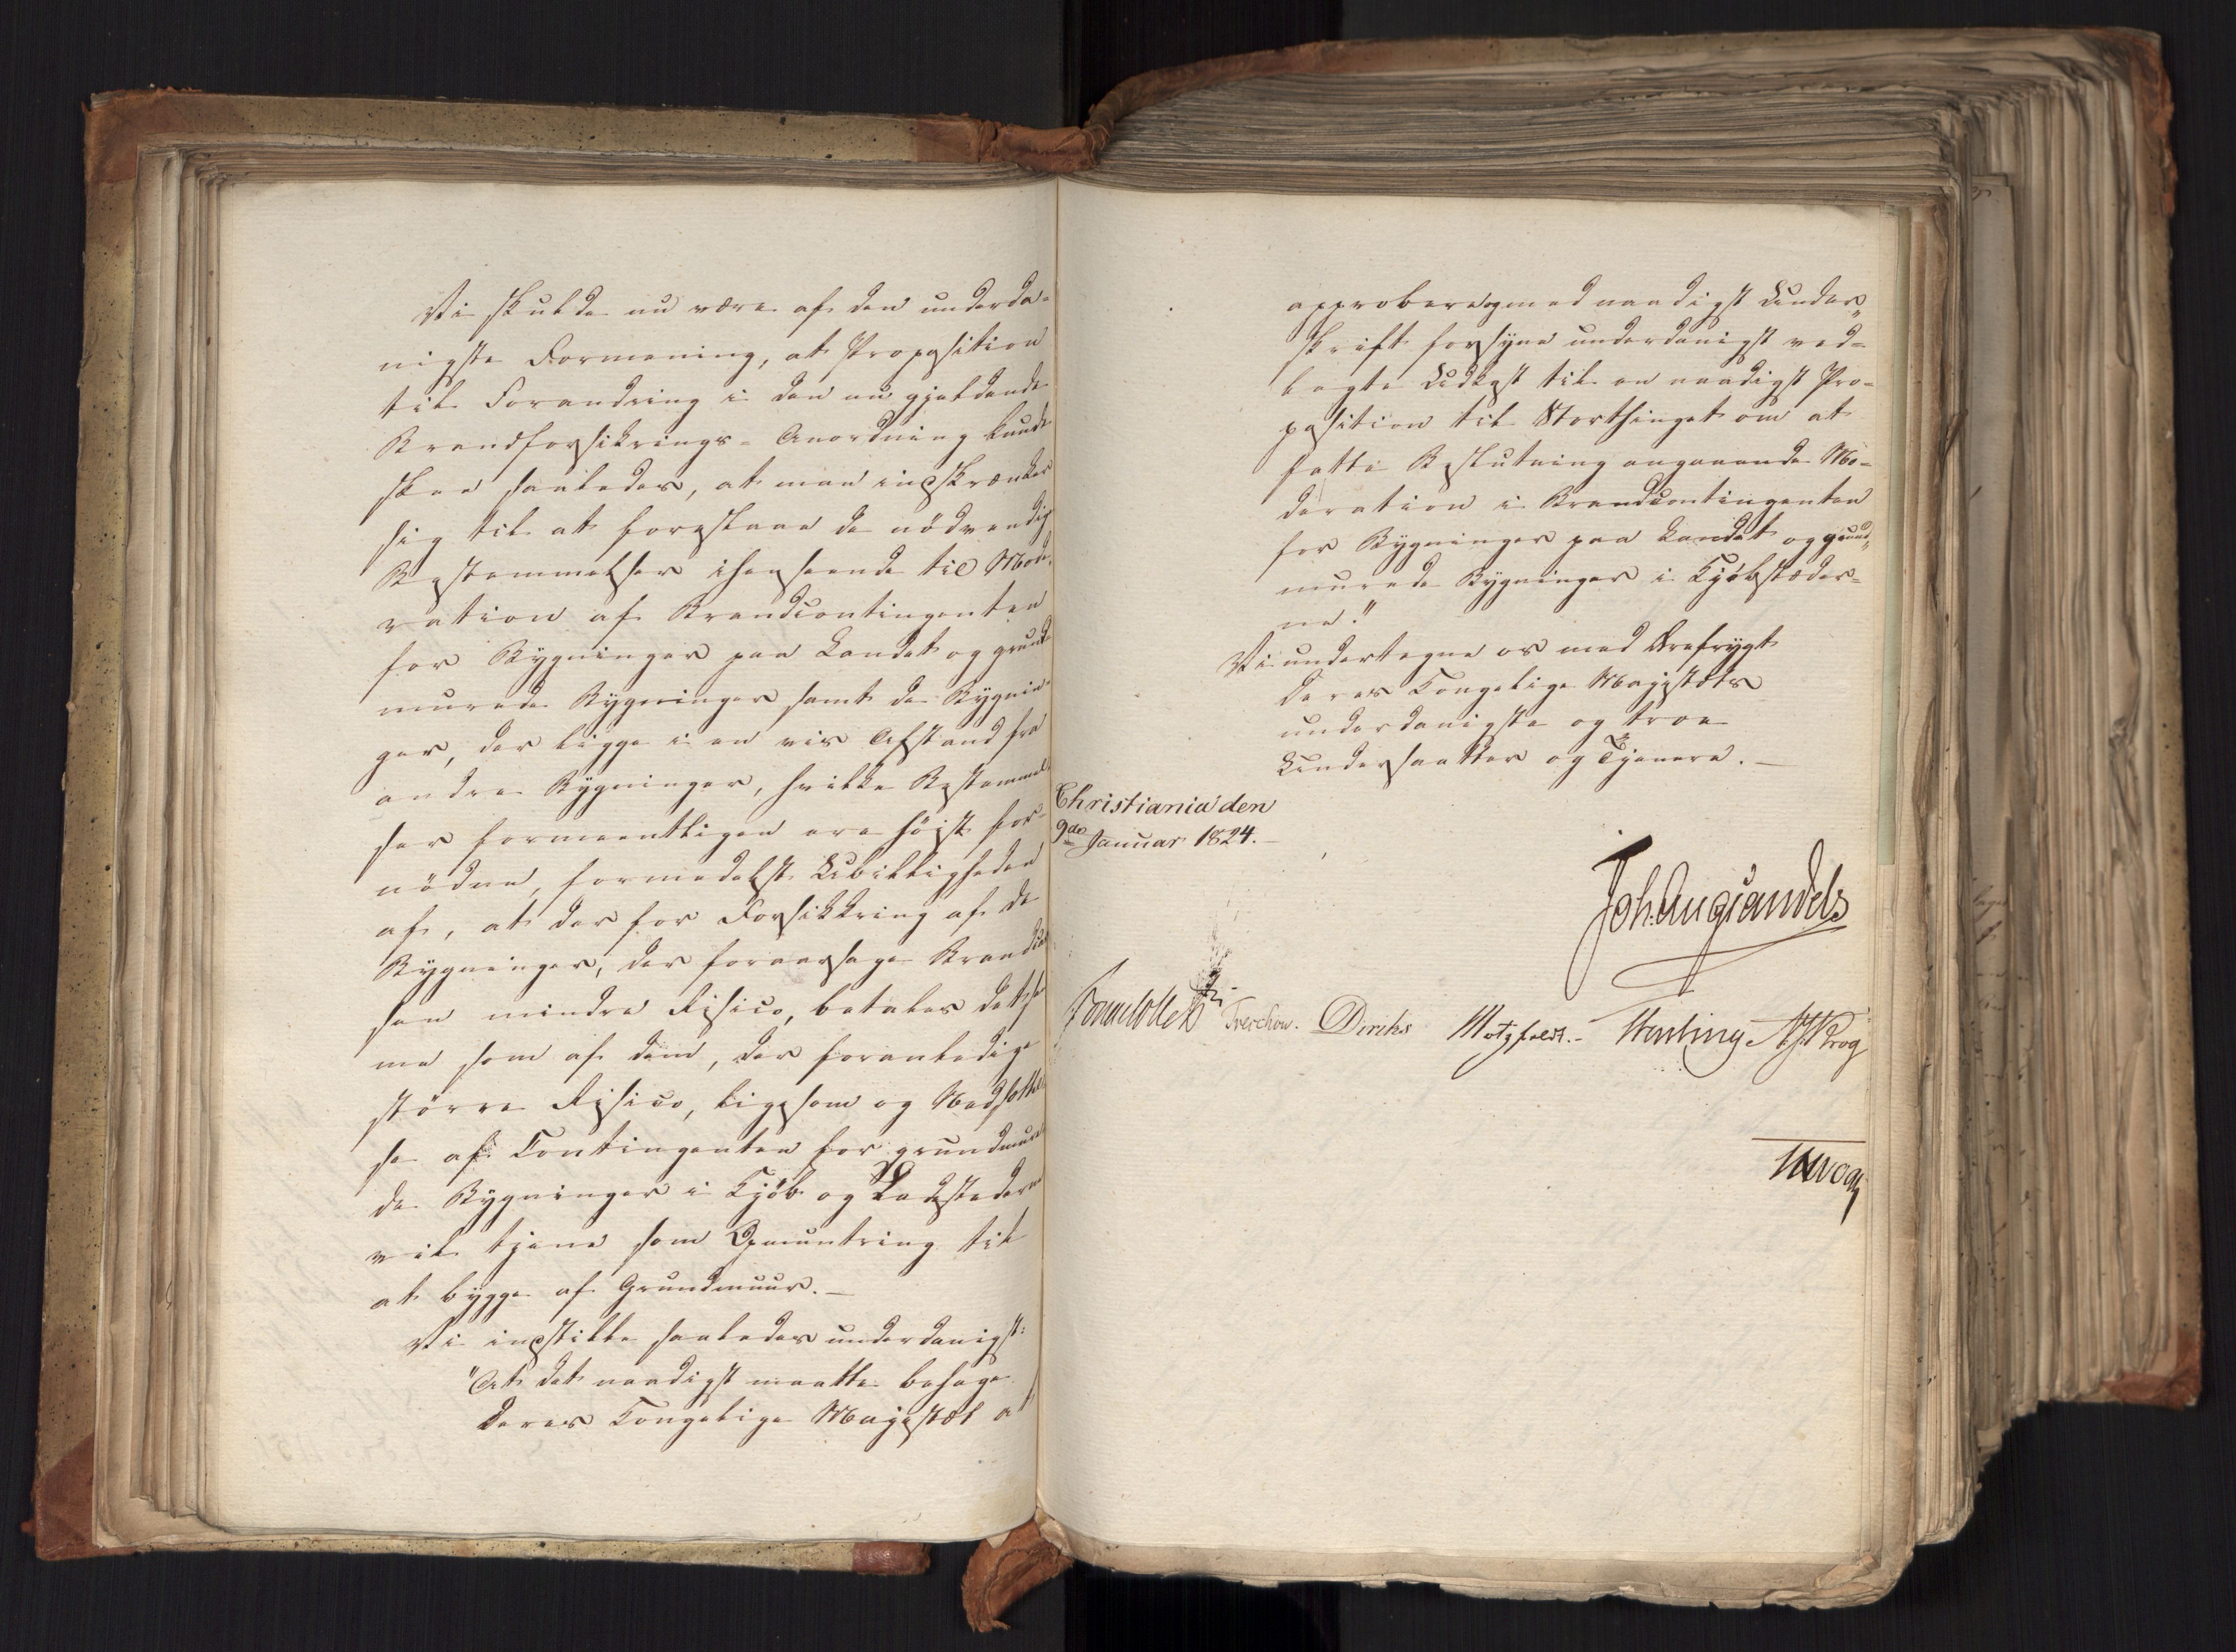 Vi skulde nu være af den underda-
nigste Formening, at Proposition
til Forandring i den nu gjeldende
Brandforsikrings-Anordning kunde
skee saaledes, at man indskrænker
sig til at foreslaae de nödvendig
Bestemmelser ihenseende til Mode
ration af Brandcontingenten
for Bygninger paa Landet og grund
murede Bygninger samt de Bygnin-
ger, der ligge i en vis Afstand fra
andre Bygninger, hvilke Bestemmel
ser formeentligen ere höist for-
nödne, formedelst Ubilligheden
af, at der for Forsikkring af de
Bygninger, der foraarsage Brandcas
sen mindre Risico, betales detsam
me som af dem, der foranledige
större Risico, ligesom og Nedsættel
se af Contingenten for grundmure
de Bygninger i Kjöb og Ladestederne
vil tjene som Opmuntring til
at bygge af Grundmuur.—
Vi indstille saaledes underdanigst:
"At det naadigst maatte behage
Deres Kongelige Majestæt at
approbere og med naadigst Under„
skrift forsyne underdanigst ved-
lagte Udkast til en naadigst Pro-
position til Storthinget om at
fatte Beslutning angaaende Mo-
deration i Brandcontingenten
for Bygninger paa Landet og grund„
murede Bygninger i Kjöbstæder-
ne."
Vi undertegne os med Ærefrygt
Deres Kongelige Majestæts
underdanigste og troe
Undersaatter og Tjenere.—
Christiania den
9de Januar 1824.—
Joh. Aug Sandels
Sommerhielm Treschow. Diriks Motzfeldt.- Hentling. Krog
Vogt